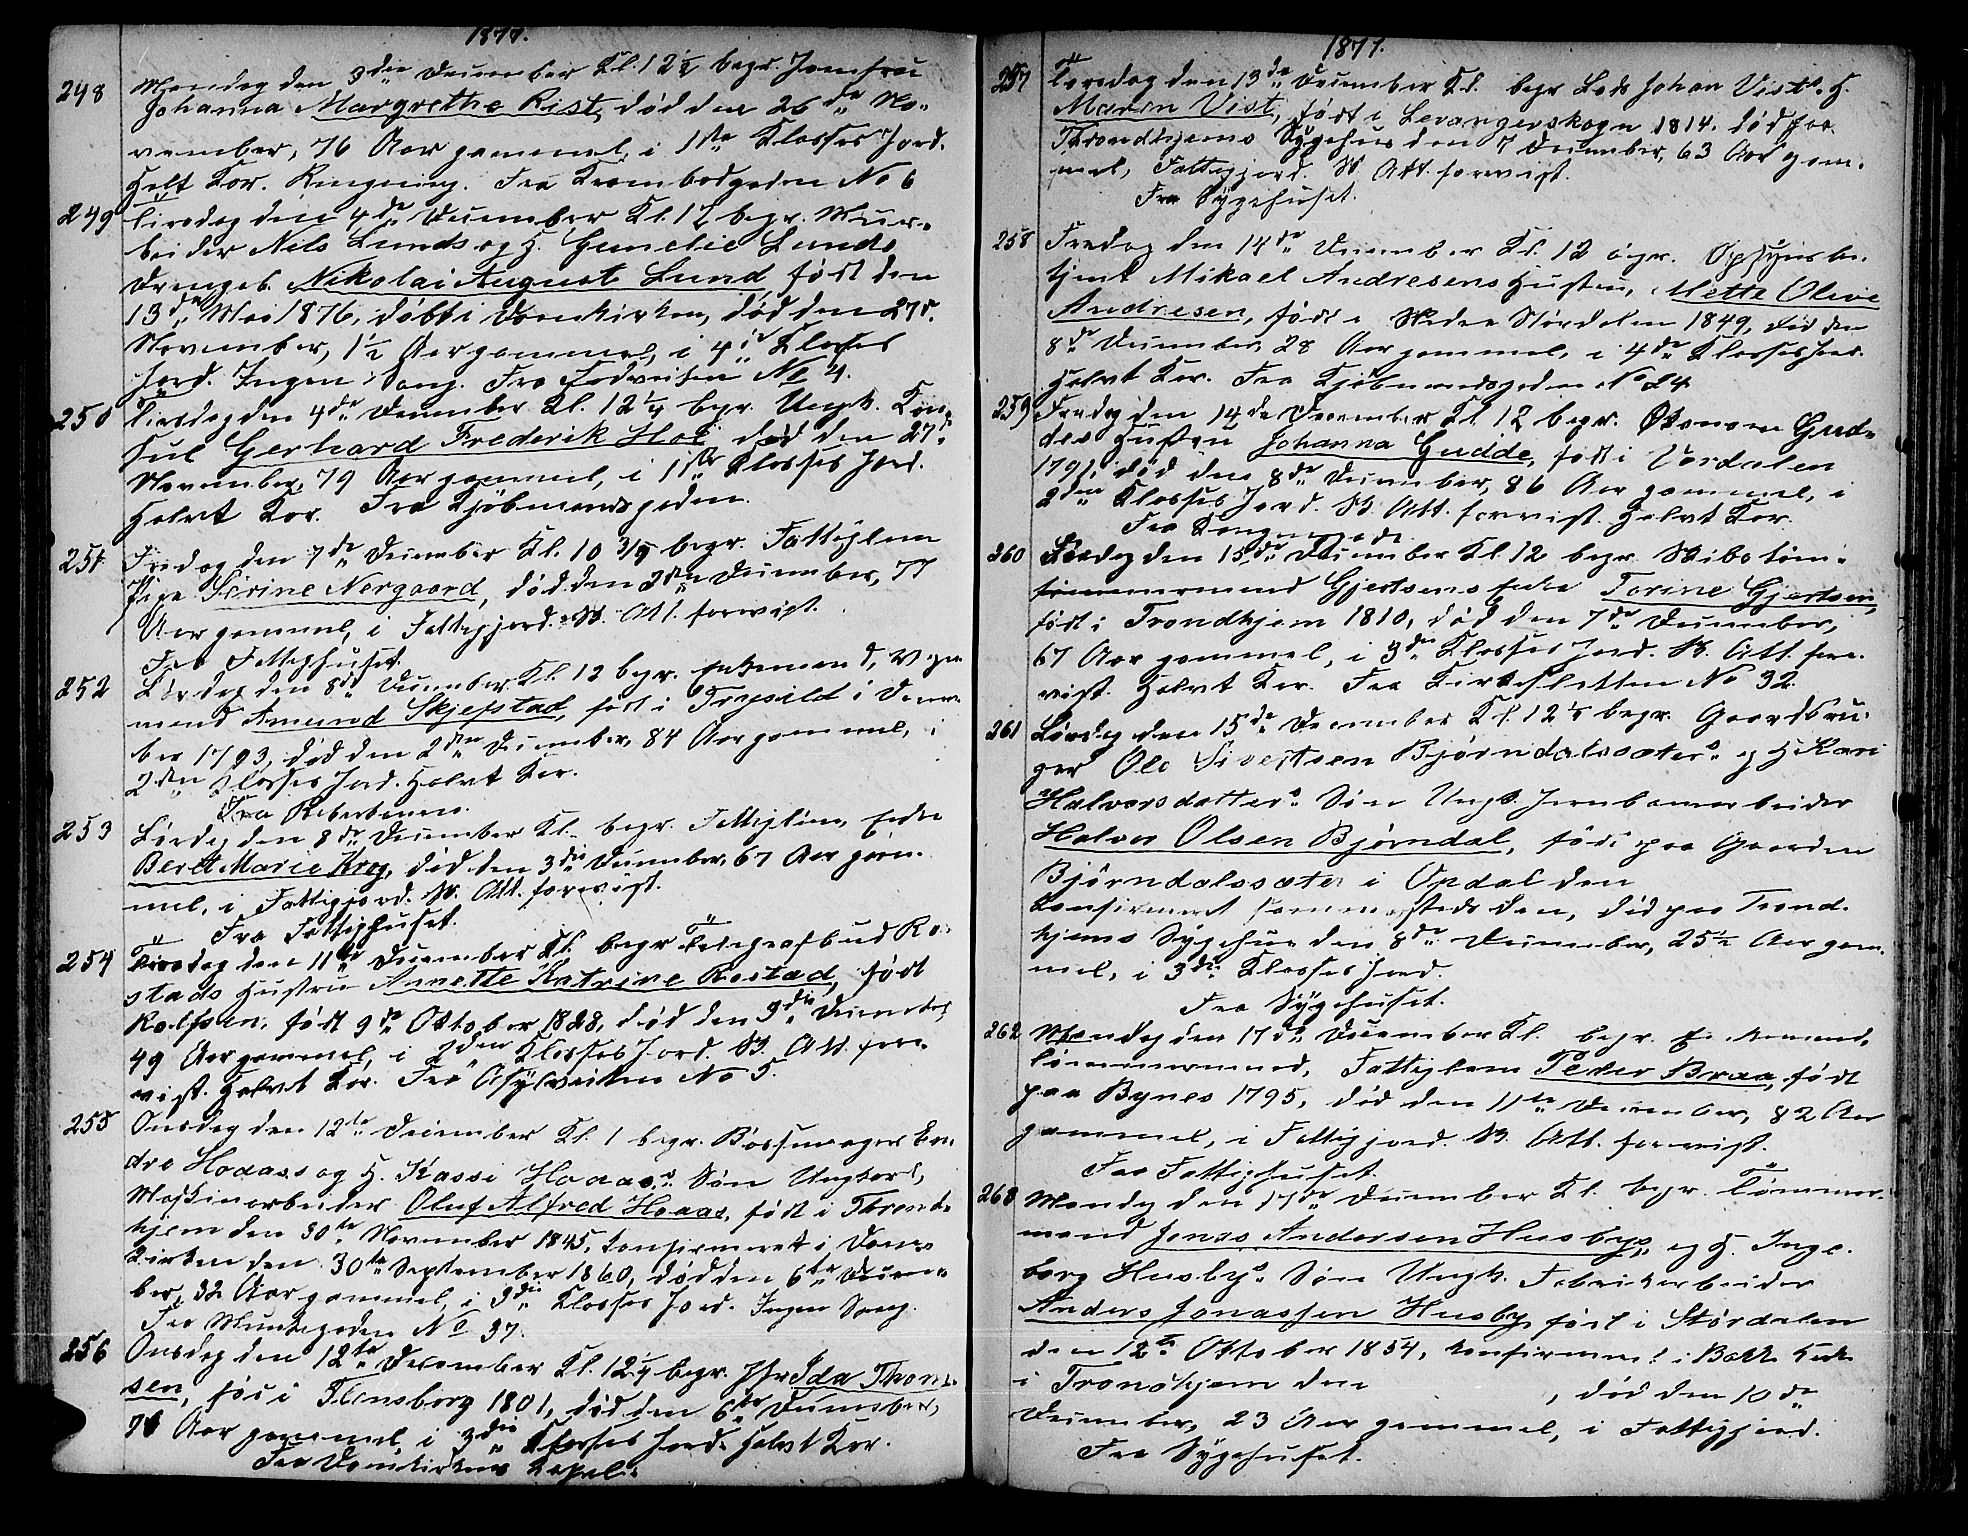 1877.
248 Mandag den 3die December Kl. 12½ begr. Jomfru
Johanna Margrethe Rist, død den 26de No-
vember, 76 Aar gammel, i 1ste Klasses Jord.
Helt Kor. Ringning. Fra Krambodgaden No 6
249 Tirsdag den 4de December Kl. 12 begr. Murar-
beider Nils Lunds og H. Lunds
Drengeb. Nikolai August Lund, født den
13de Mai 1876, døbt i Domkirken, død den 27de
November, 1½ Aar gammel, i 4de Klasses
Jord. Ingen Sang. Fra No 4.
250 Tirsdag den 4de December Kl. 12¼ begr. Ungk. Kon-
sul Gerhard Frederik Hoe, død den 27de
November, 79 Aar gammel, i 1ste Klasses Jord.
Halvt Kor. Fra Kjøbmandsgaden.
251 Fredag den 7de December Kl. 10¾ begr. Fattiglem
Pige Serine Nergaard, død den 2den December, 77
Aar gammel, i Fattigjord. Sk. Att. forevist.
Fra Fattighuset.
252 Lørdag den 8de December Kl. 12 begr. Enkemand, Vogn-
mand Amund Skjefstad, født i Trysild i Decem-
ber 1793, død den 2den December, 84 Aar gammel, i
2den Klasses Jord. Halvt Kor.
Fra Reberbanen.
253 Lørdag den 8de December Kl. begr. Fattiglem, Enke
Beret Marie Krog, død den 3die December, 67 Aar gam-
mel, i Fattigjord. Sk. Att. forevist.
Fra Fattighuset.
254 Tirsdag den 11te December Kl. begr. Telegrafbud Ro-
stads Hustru Annette Katrine Rostad, født
Rolfsen, født 9de Oktober 1828, død den 3die December,
49 Aar gammel, i 2den Klasses Jord. Sk. Att. fore-
vist. Halvt Kor. Fra Asylveiten No 5.
255 Onsdag den 12te December Kl. 1 begr. Bøssemager En-
dre Hoaas og H. Kassi Hoaas's Søn Ungkarl,
Maskinarbeider Oluf Alfred Hoaas, født i Thrond-
hjem den 30te November 1845, konfirmeret i Dom-
kirken den 30te September 1860, død den 6te Decem-
ber, 32 Aar gammel, i 3die Klasses Jord. Ingen Sang.
Fra Munkegaden No 37.
256 Onsdag den 12te December Kl. 12¼ begr. Jfr Ida Thom-
sen, født i Flensborg 1801, død den 6te December,
76 Aar gammel, i 3die Klasses Jord. Halvt Kor.
Fra Domkirkens Kapel.
1877.
257 Torsdag den 13de December Kl. begr. Lods Johan Vist's H.
Maren Vist, født i Levangerskogn 1814, død paa
Throndhjems Sygehus den 7 December, 63 Aar gam-
mel, Fattigjord. Sk. Att. forevist.
Fra Sygehuset.
258 Fredag den 14de December Kl. 12 begr. Opsynsbe-
tjent Mikael Andresens Hustru, Mette Olive
Andresen, født i Nedre Størdalen 1849, død den
8de December, 28 Aar gammel, i 4de Klasses Jord.
Halvt Kor. Fra Kjøbmandsgaden No 24.
259 Fredag den 14de December Kl. 12 begr. Økonom Gud-
des Hustru Johanna Gudde, født i Værdalen
1791, død den 8de December, 86 Aar gammel, i
2den Klasses Jord. Sk. Att. forevist. Halvt Kor.
Fra Kongensgade.
260 Lørdag den 15de December Kl. 12 begr. Skibstøm-
mermand Gjertsens Enke Torine Gjertsen,
født i Trondhjem 1810, død den 7de December,
67 Aar gammel, i 3die Klasses Jord. Sk. Att. fore-
vist. Halvt Kor. Fra Kirkesletten No 32.
261 Lørdag den 15de December Kl. 12¼ begr. Gaardbru-
ger Ole Sivertsen Bjørndalssæters og H. Kari
Halvorsdatters Søn Ungk. Jernbanearbeider
Halvor Olsen Bjørndal, født paa Gaarden
Bjørndalssæter i Opdal den
Konfirmeret sammesteds den, død paa Trond-
hjems Sygehus den 8de December, 25½ Aar gam-
mel, i 3die Klasses Jord.
Fra Sygehuset.
262 Mandag den 17de December Kl. begr. Enkemand,
Tømmermand, Fattiglem Peder Braa, født
paa Bynes 1795, død den 11te December, 82 Aar
gammel, i Fattigjord. Sk. Att. forevist.
Fra Fattighuset.
263 Mandag den 17de December Kl. begr. Tømmer-
mand Jonas Andersen Husbys og H. Inge-
borg Husbys Søn Ungk. Fabrikarbeider
Anders Jonassen Husby, født i Størdalen
den 12te Oktober 1854, konfirmeret i Bakke Kirke
i Trondhjem den , død den 10de
December, 23 Aar gammel, i Fattigjord.
Fra Sygehuset.